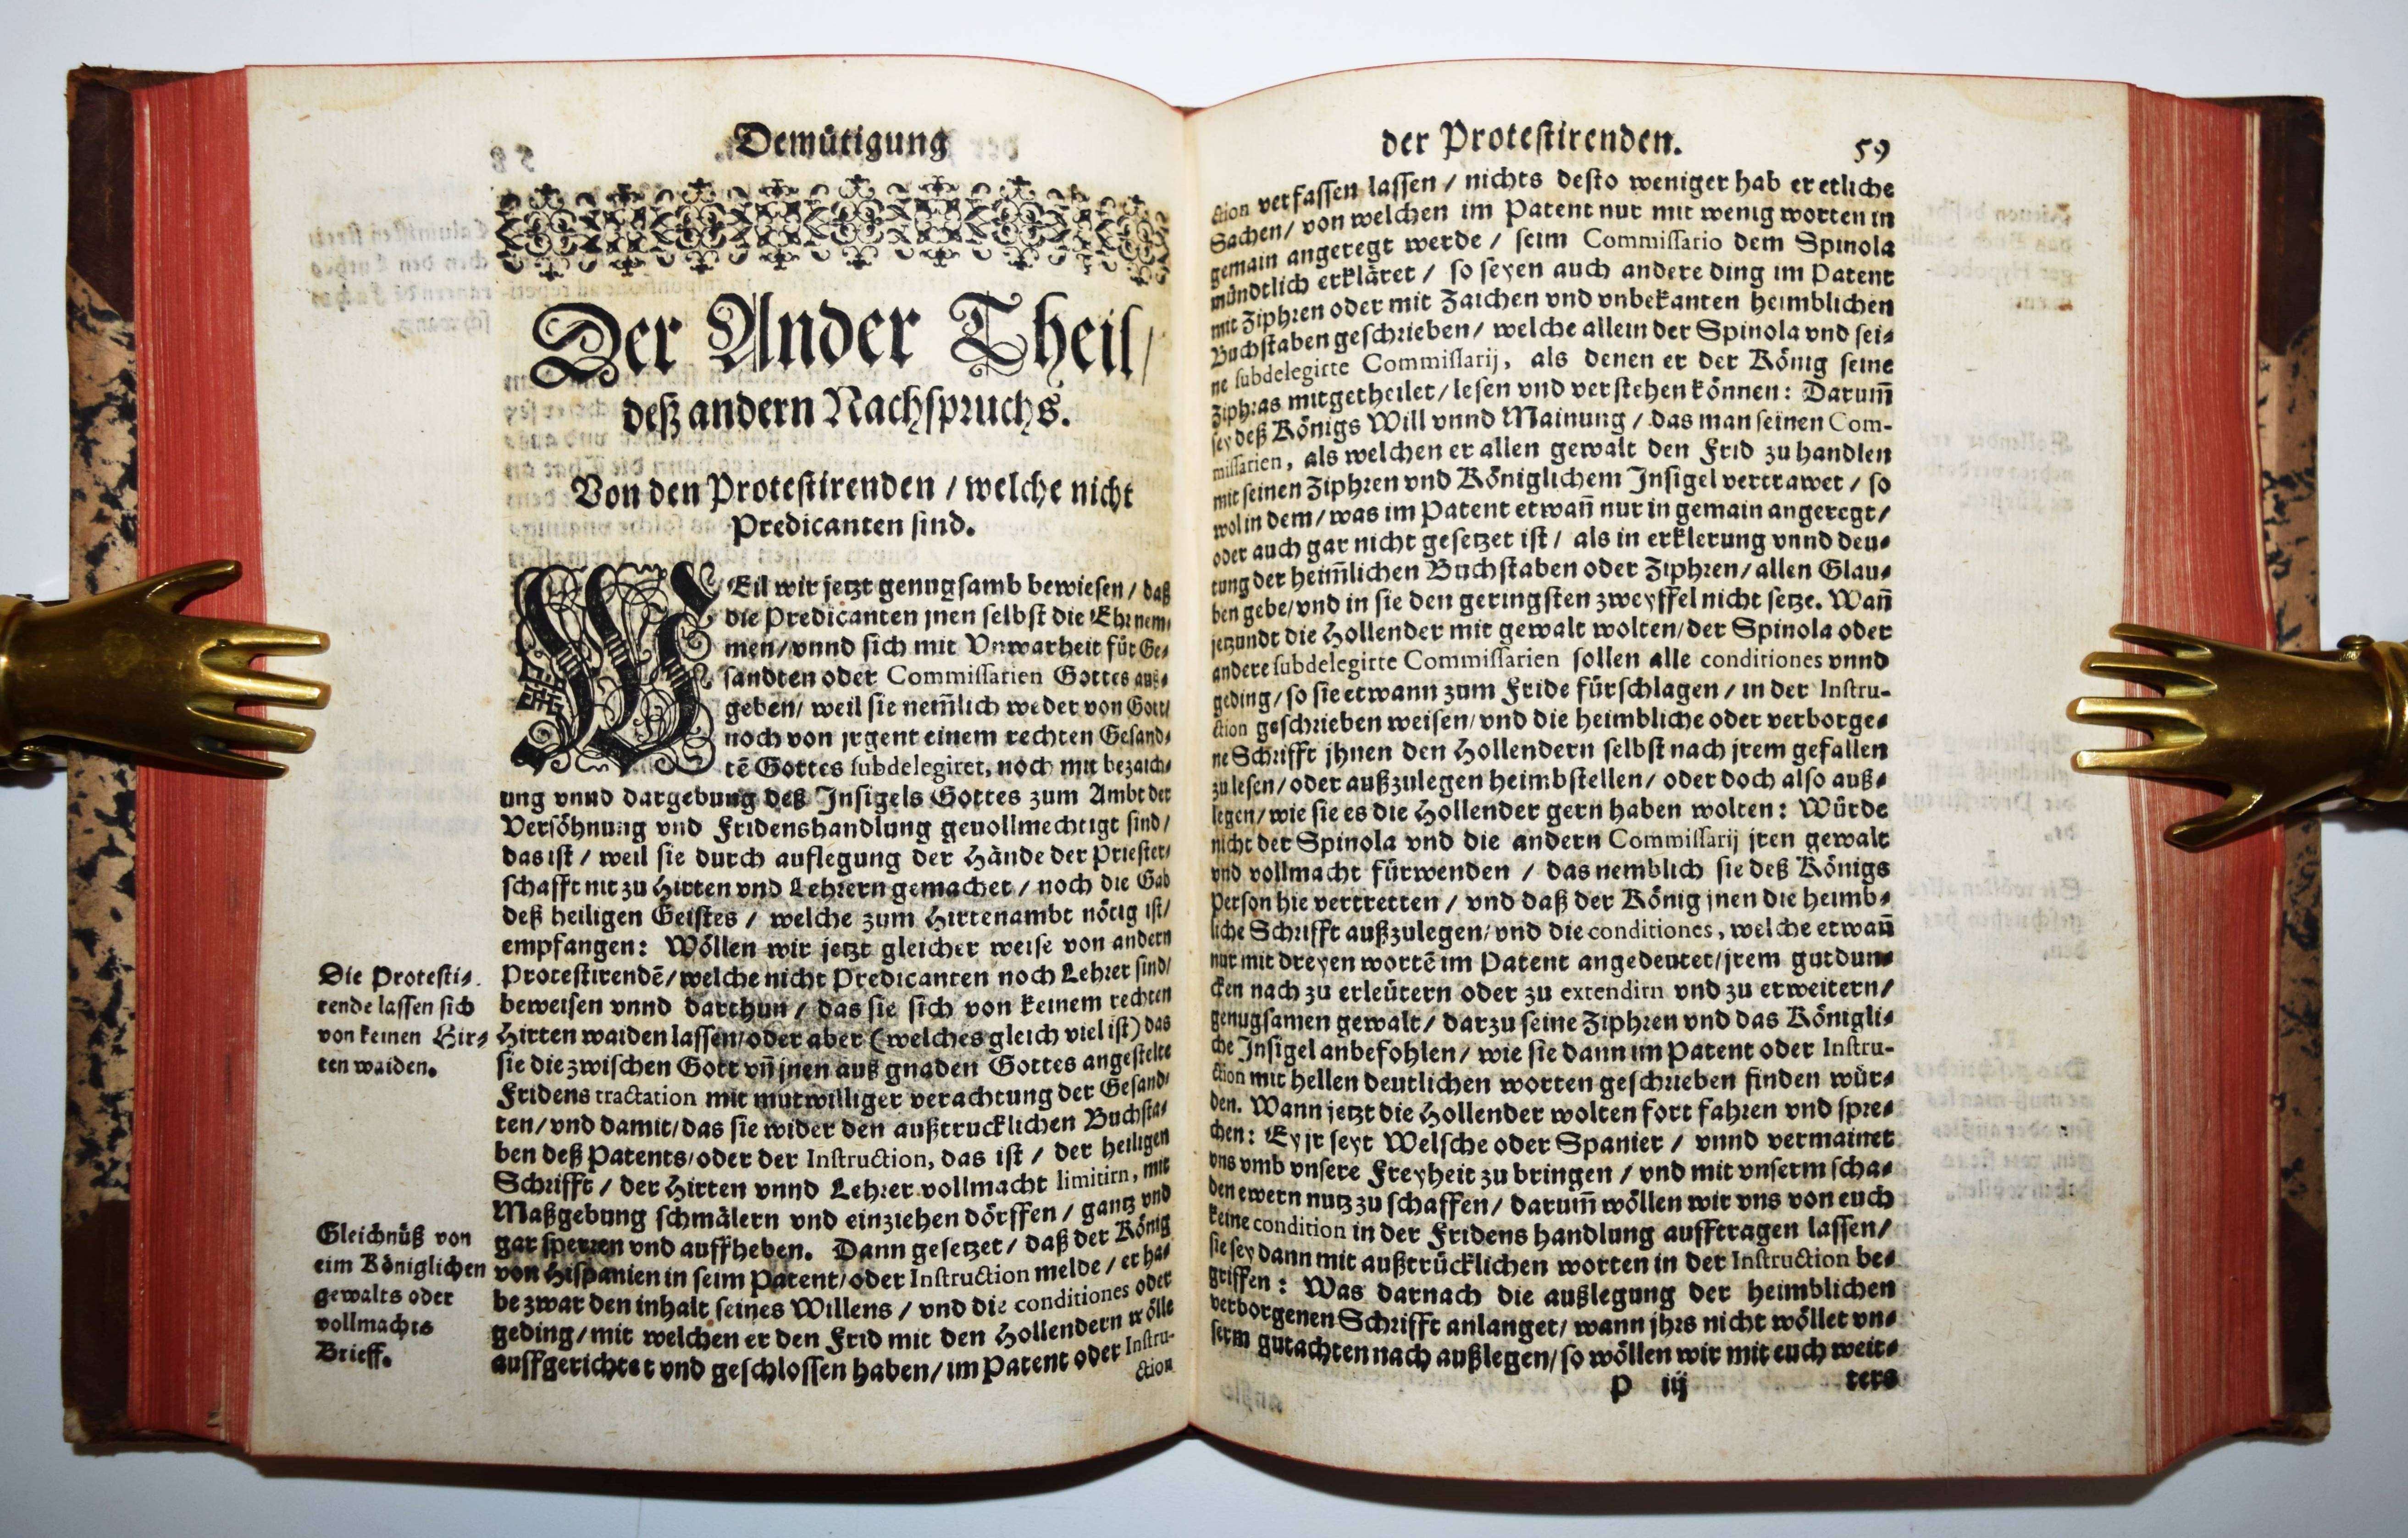 Demütigung
Der Ander Theil/
deß andern Nachspruchs.
Von den Protestirenden / welche nicht
Predicanten sind.
WEil wir jetzt genugsamb bewiesen / daß
die Predicanten jnen selbst die Ehr nem⸗
men/vnnd sich mit Vnwarheit für Ge⸗
sandten oder Commissarien Gottes auß⸗
geben/ weil sie nem̄lich weder von Gott/
noch von jrgent einem rechten Gesand⸗
tē Gottes subdelegiret, noch mit bezaich⸗
ung vnnd dargebung deß Insigels Gottes zum Ambt der
Versöhnung vnd Fridenshandlung geuollmechtigt sind/
das ist / weil sie durch auflegung der Hände der Priester⸗
schafft nit zu Hirten vnd Lehrern gemachet / noch die Gab
deß heiligen Geistes / welche zum Hirtenambt nötig ist/
empfangen: Wöllen wir jetzt gleicher weise von andern
Protestirendē/welche nicht Predicanten noch Lehrer sind/
beweisen vnnd darthun / das sie sich von keinem rechten
Hirten waiden lassen/oder aber (welches gleich viel ist) das
sie die zwischen Gott vn̄ jnen auß gnaden Gottes angestelte
Fridens tractation mit mutwilliger verachtung der Gesand⸗
ten/vnd damit/das sie wider den außtrucklichen Buchsta⸗
ben deß Patents/oder der Instruction, das ist / der heiligen
Schrifft / der Hirten vnnd Lehrer vollmacht limitirn, mit
Maßgebung schmälern vnd einziehen dörffen / gantz vnd
gar sperren vnd auffheben. Dann gesetzet / daß der König
von Hispanien in seim Patent/oder Instruction melde / er ha⸗
be zwar den inhalt seines Willens / vnd die conditiones oder
geding/mit welchen er den Frid mit den Hollendern wölle
auffgerichtet vnd geschlossen haben/im Patent oder Instru-
ction
Die Protesti⸗
rende lassen sich
von keinen Hir⸗
ten waiden.
Gleichnüß von
eim Königlichen
gewalts oder
vollmachts
Brieff.
der Protestirenden. 59
ction verfassen lassen / nichts desto weniger hab er etliche
Sachen/ von welchen im Patent nur mit wenig worten in
gemain angeregt werde / seim Commissario dem Spinola
mündtlich erkläret / so seyen auch andere ding im Patent
mit Ziphren oder mit Zaichen vnd vnbekanten heimblichen
Buchstaben geschrieben/ welche allein der Spinola vnd sei⸗
ne subdelegirte Commissarij, als denen er der König seine
Ziphras mitgetheilet/lesen vnd verstehen können: Darum̄
sey deß Königs Will vnnd Mainung / das man seinen Com-
missarien, als welchen er allen gewalt den Frid zu handlen
mit seinen Ziphren vnd Königlichem Insigel vertrawet / so
wol in dem/was im Patent etwan̄ nur in gemain angeregt/
oder auch gar nicht gesetzet ist/ als in erklerung vnnd deu⸗
tung der heim̄lichen Buchstaben oder Ziphren/allen Glau⸗
ben gebe/vnd in sie den geringsten zweyffel nicht setze. Wan̄
jetzundt die Hollender mit gewalt wolten/der Spinola oder
andere subdelegirte Commissarien sollen alle conditiones vnnd
geding/so sie etwann zum Fride fürschlagen / in der Instru-
ction geschrieben weisen/vnd die heimbliche oder verborge⸗
ne Schrifft jhnen den Hollendern selbst nach jrem gefallen
zu lesen/oder außzulegen heimbstellen/ oder doch also auß⸗
legen/wie sie es die Hollender gern haben wolten: Würde
nicht der Spinola vnd die andern Commissarij jren gewalt
vnd vollmacht fürwenden / das nemblich sie deß Königs
Person hie vertretten / vnd daß der König jnen die heimb⸗
liche Schrifft außzulegen/vnd die conditiones, welche etwan̄
nur mit dreyen wortē im Patent angedeutet/jrem gutdun⸗
cken nach zu erleütern oder zu extendirn vnd zu erweitern/
genugsamen gewalt/ darzu seine Ziphren vnd das Königli⸗
che Insigel anbefohlen/ wie sie dann im Patent oder Instru-
ction mit hellen deutlichen worten geschrieben finden wür⸗
den. Wann jetzt die Hollender wolten fort fahren vnd spre⸗
chen: Ey jr seyt Welsche oder Spanier / vnnd vermainet
vns vmb vnsere Freyheit zu bringen / vnd mit vnserm scha⸗
den ewern nutz zu schaffen/ darum̄ wöllen wir vns von euch
keine condition in der Fridens handlung aufftragen lassen/
sie sey dann mit außtrücklichen worten in der Instruction be⸗
griffen: Was darnach die außlegung der heimblichen
verborgenen Schrifft anlanget/ wann jhrs nicht wöllet vn⸗
serm gutachten nach außlegen/so wöllen wir mit euch weit⸗
P iij ters